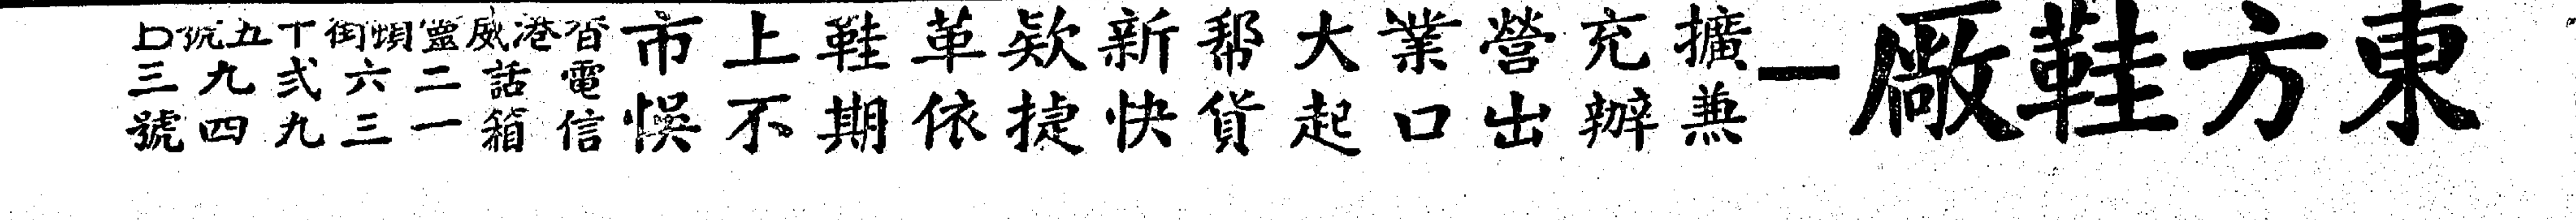 東方鞋廠
擴充營業大帮新欵革鞋上市
兼辦出口起貨快捷依期不悞
香港威靈頓街十五號
電話二六弍九三
信箱一三九四號